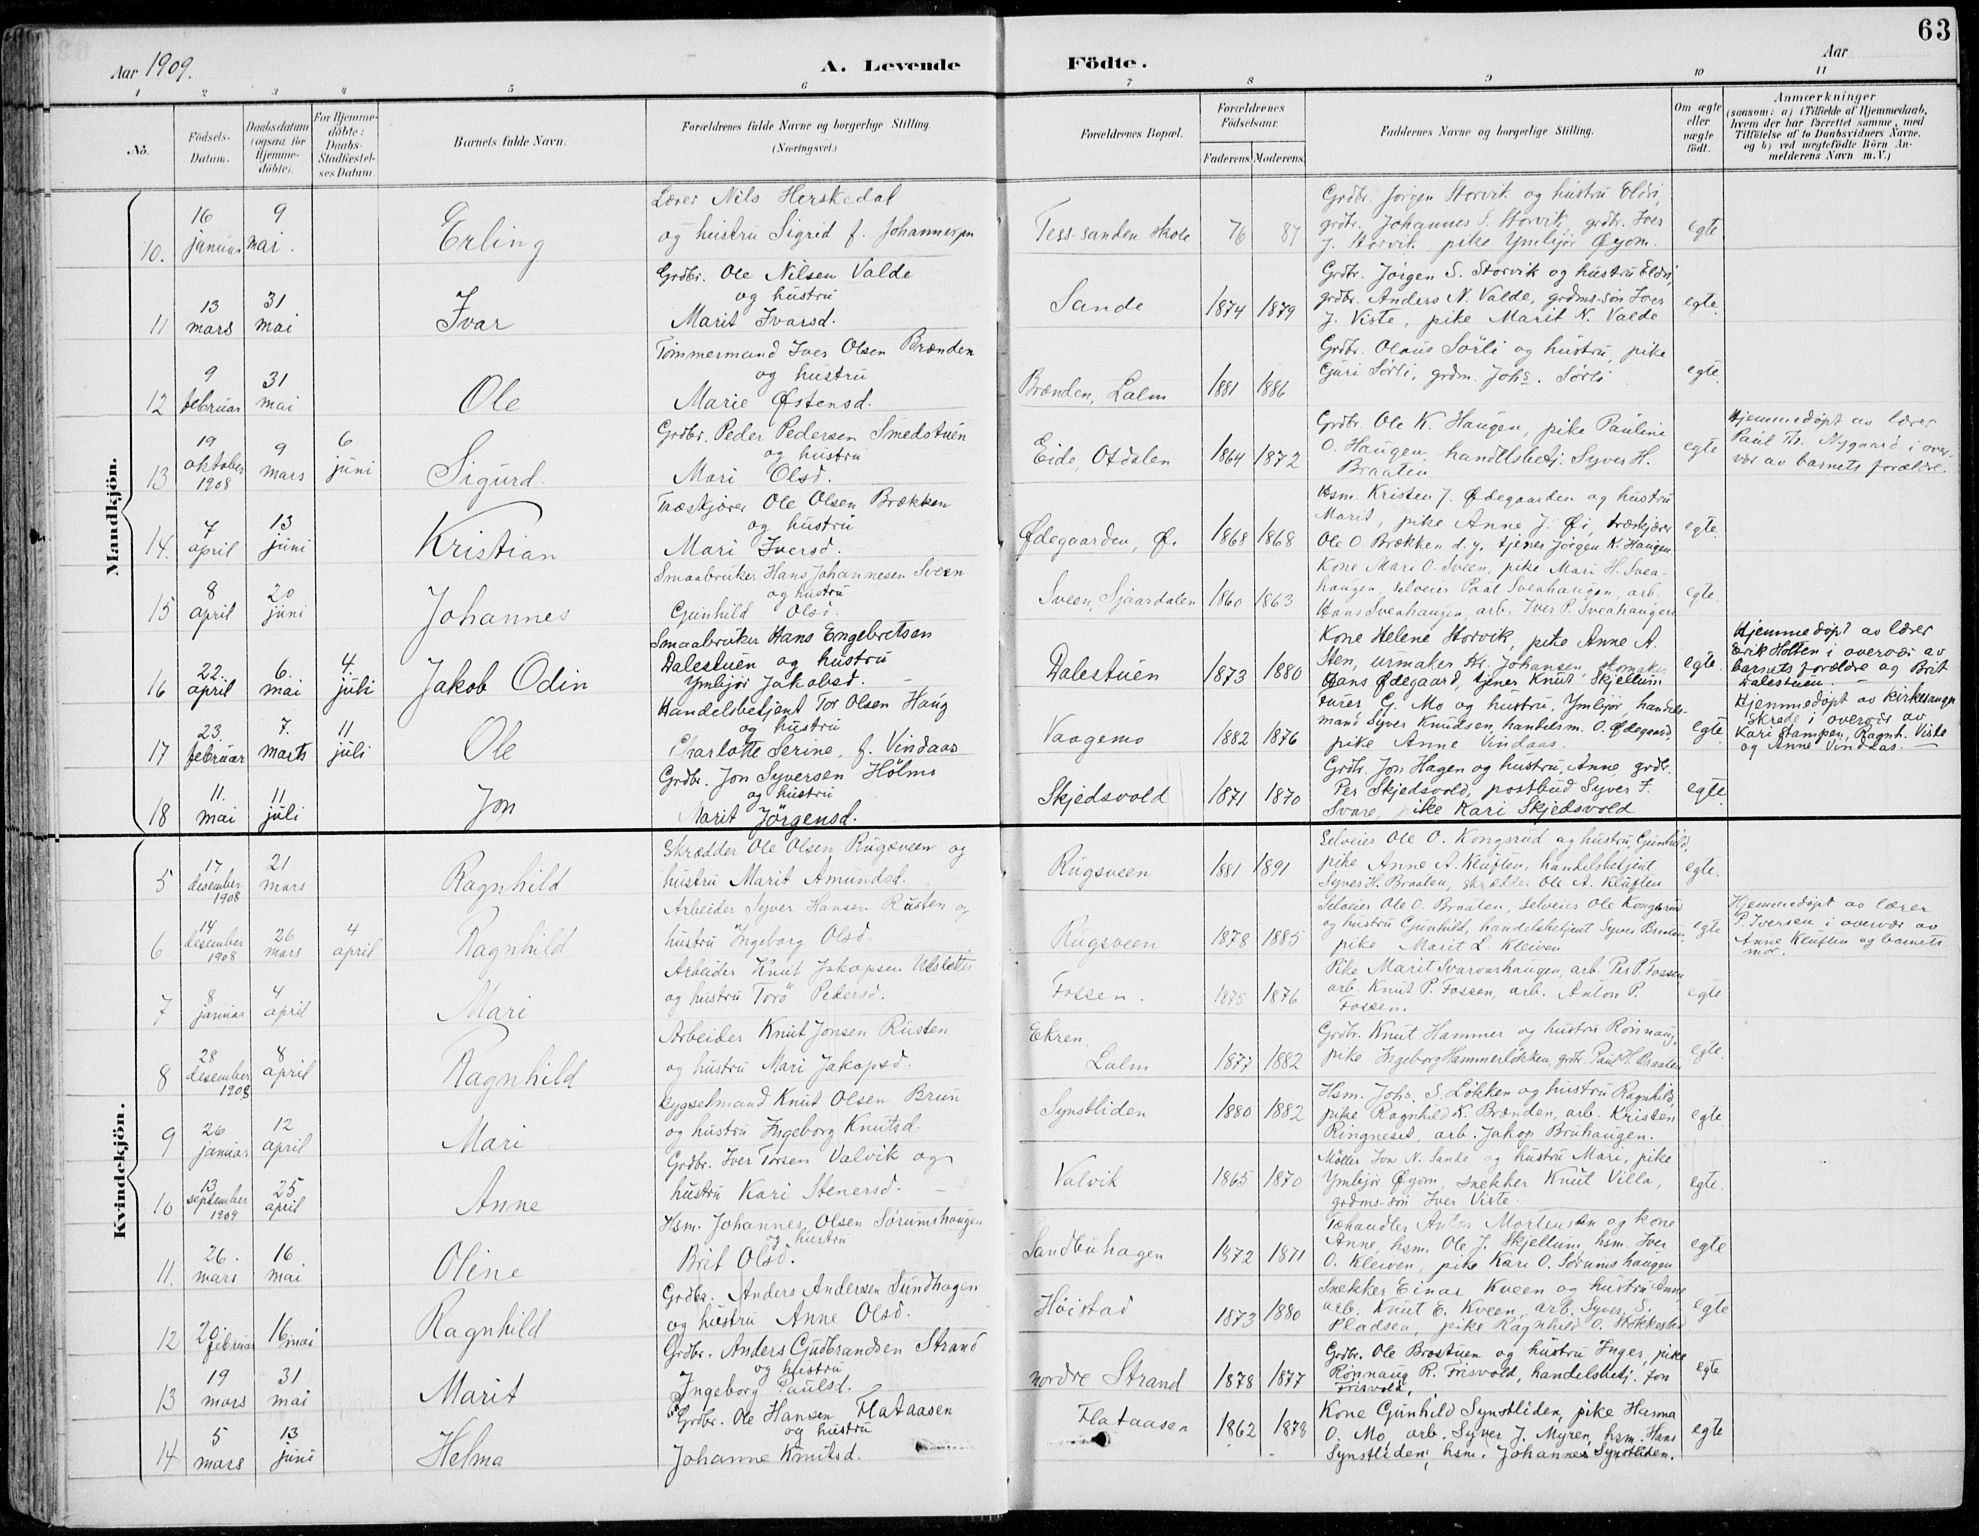 63
Aar 1909.
A. Levende Födte.
Aar
1 2 3 4 5 6 7 8 9 10 11
No.
Födsels-Datum.
Daabsdatum (ogsaa for Hjemme-döbte).
For Hjemme-döbte: Daabs-Stadfæstel-ses Datum.
Barnets fulde Navn.
Forældrenes fulde Navne og borgerlige Stilling.
(Næringsvei.)
Forældrenes Bopæl.
Forældrenes Födselsaar.
Faderens Moderens
Faddernes Navne og borgerlige Stilling.
Om ægte eller uægte födt.
Anmærkninger
(saasom: a) i Tilfælde af Hjemmedaab, hvem der har forrettet samme, med Tilföielse af to Daabsvidners Navne. og b) ved uægtefödte Börn Anmelderens Navn m.V.)
Mandkjön.
10. 16 januar 9 mai. Erling
Lærer Nils Herskedal
og hustru Sigrid f.
Tess-sanden skole 76 87
Grdbr. Jørgen Storvik og hustru Eldri,
grdbr. Johannes S. Storvik, grdbr. Iver
J. Storvik, pike Ymbjør Øyom.
egte
11 13 mars 31 mai Ivar
Grdbr. Ole Nilsen Valde
og hustru
Marit Ivarsd.
Sande 1874 1879
Grdbr. Jørgen S. Storvik og hustru Eldri,
grdbr. Anders N. Valde, grdms-søn Iver
J. Viste, pike Marit N. Valde
egte.
12 9 februar 31 mai Ole
Tømmermand Iver Olsen Brænden
og hustru
Marie Østensd.
Brænden, Lalm 1881 1886
Grdbr. Olaus Sørli og hustru, pike
Guri Sørli, grdm. Johs. Sørli
egte.
13 19 oktober 1908 9 mars 6 juni Sigurd
Grdbr. Peder Pedersen Smedstuen
og hustru
Mari Olsd.
Eide, Otdalen 1864 1872
Grdbr. Ole K. Haugen, pike Pauline
O. Haugen, handlsbetj. Syver H.
Braaten
egte
Hjemmedøpt av lærer
Paul Th. Nygaard i over-
vær av barnets forældre.
14. 7 april 13 juni Kristian
Træskjærer Ole Olsen Brækken
og hustru
Mari Iversd.
Ødegaarden, Ø. 1868 1868
Hsm. Kristen J. Ødegaarden og hustru
Marit, pike Anne J. Øi, træskjærer
Ole O. Brækken d.y. tjener Jørgen K. Haugen
egte.
15 8 april 20 juni Johannes
Smaabruker Hans Johannesen Sveen
og hustru
Gunhild Olsd.
Sveen, Sjaardalen 1860 1863
Kone Mari O. Sveen, pike Mari H. Svea-
haugen, selveier Paal Sveahaugen, arb.
Hans Sveahaugen, arb. Iver P. Sveahaugen
egte.
16 22. april 6. mai 4. juli Jakob Odin
Smaabruker Hans Engebretsen
Dalestuen og hustru
Ymbjør Jakobsd.
Dalestuen 1873 1880
Kone Helene Storvik, pike Anne A.
Sten, urmaker Th. Johansen,
Hans Ødegaard, tjener Knut Skjellum
egte.
Hjemmedøpt av lærer
Erik Holten i overvær av
barnets forældre og Brit
Dalestuen.
17 23. februar 7. marts 11 juli Ole
Handelsbetjent Tor Olsen Haug
og hustru
Charlotte Serine, f. Vindaas
Vaagemo 1882 1876
furer G. Mo og hustru, Ymbjør, handels-
mand Syver Knudsen, handelsm. O. Ødegaard,
pike Anne Vindaas.
egte.
Hjemmedøpt av kirkesanger
Skrede i overvær av
Kari Stampen, Ragnh. Viste
og Anne Vindaas.
18 11. mai 11 juli Jon
Grdbr. Jon Syversen Hølmo
og hustru
Marit Jörgensd.
Skjedsvold 1871 1870
Grdbr. Jon Hagen og hustru, Anne, grdbr.
Per Skjedsvold, postbud Syver F.
Svare pike Kari Skjedsvold
egte.
Kvindekjön.
5 17 desember 1908 21 mars Ragnhild
Skrædder Ole Olsen Rugsveen og
hustru Marit Amundsd.
Rugsveen 1881 1891
Selveier Ole O. Kongsrud og hustru Gunhild,
pike Anne A. Kluften, handelsbetjent
Syver H. Braaten, skrædder Ole A. Kluften
egte.
6 14 desember 1908 26 mars 4 april Ragnhild
Arbeider Syver Hansen Rusten og
hustru Ingeborg Olsd.
Rugsveen 1878 1885
Selveier Ole O. Braaten, selveier Ole Kongsrud
og hustru Gunhild, handelsbetjent Syver Braaten,
pike Marit L. Kleiven
egte
Hjemmedøpt av lærer
P. Iversen i overvær av
Anne Kluften og barnets
mor.
7 8 januar 4 april Mari
Arbeider Knut Jakopsen
og hustru Torø Pedersd.
Fossen. 1875 1876
Pike Marit Svarvarhaugen, arb. Per P. Fossen
arb. Knut P. Fossen, arb. Anton P.
Fossen.
egte
8 28 desember 1908 8 april Ragnhild
Arbeider Knut Jonsen Rusten
og hustru Mari Jakopsd.
Ekren Lalm 1877 1882
Grdbr. Knut Hammer og hustru Rønnaug,
pike Ingeborg Hammerløkken, grdbr. Paul H. Braaten
egte.
9 26 januar 12 april Mari
Bygselmand Knut Olsen Brun
og hustru Ingeborg Knutsd.
Synstliden 1880 1882
Hsm. Johs. S. Løkken og hustru Ragnhild,
pike Ragnhild K. Brænden, arb. Kristen
Ringneset, arb. Jakop Bruhaugen.
egte
10 13 september 1909 25 april Anne
Grdbr. Iver Torsen Valvik og
hustru Kari Stenersd.
Valvik 1865 1870
Møller Iva N. Sande og hustru Mari, pike
Ymbjør Øyom, snekker Knut Villa,
grdms-søn Iver Viste.
egte.
11. 26. mars 16. mai Oline
Hsm. Johannes Olsen Sørumshaugen
og hustru
Brit Olsd.
Sandbuhagen 1872 1871
Fæhandler Anton Mortensen og kone
Anne, hsm. Ole J. Skjellum, hsm. Iver
O. Kleiven, pike Kari O. Sørumshaugen
egte
12 20. februar 16 mai Ragnhild
Grdbr. Anders Andersen Sundhagen
og hustru Anne Olsd.
Høistad 1873 1880
Snekker Einar Kveen og hustru Anne,
arb. Knut E. Kveen, arb. Syver S.
Pladsen, pike Ragnhild O. Stokkestad
egte
13 19 mars 31 mai Marit
Grdbr. Anders Gudbrandsen Strand
og hustru
Ingeborg Paulsd.
nordre Strand 1878 1877
Grdbr. Ole Brostuen og hustru Inger, pike
Rønnaug R. Frisvold, handelsbetj. Jon
Frisvold,
egte
14 5 mars 13 juni Helma
Grdbr. Ole Hansen Flataasen
og hustru
Johanne Knutsd.
Flataasen 1862 1878
Kone Gunhild Synstliden, pike Hanna
O. Mo, arb. Syver J. Myren, hsm. Hans
Synstliden, hsm. Johannes Synstliden.
egte